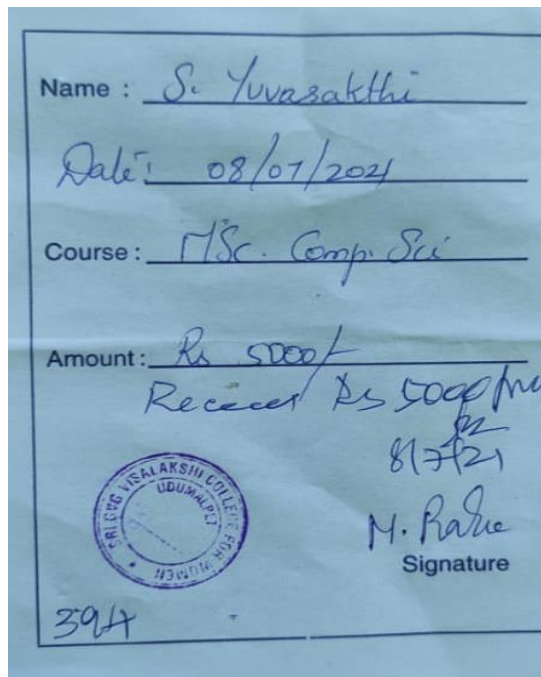 Name : S. Yuvasakthi
Date: 08/07/2021
Course : MSc. Comp. Sci
Amount : Rs 5000/-
Rs 5000/-
8/7/21
SRI GVG VISALAKSHI COLLEGE FOR WOMEN
UDUMALPET
Signature
394